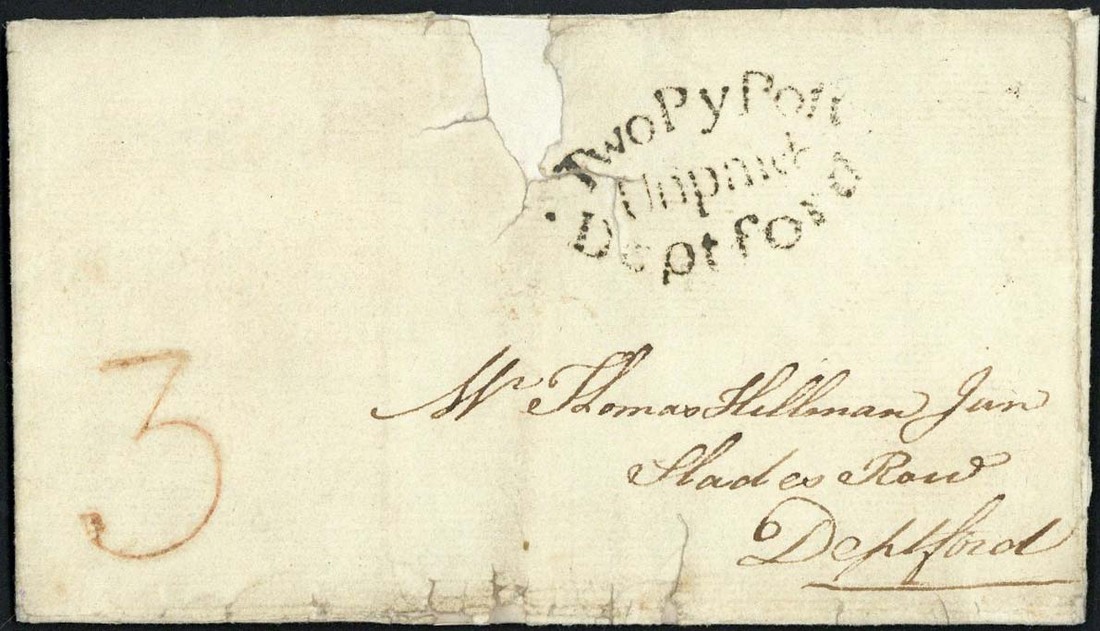 Two Py Post
Unpaid
Deptford
3
Mr Thomas Hillman Jun
Slades Row
Deptford